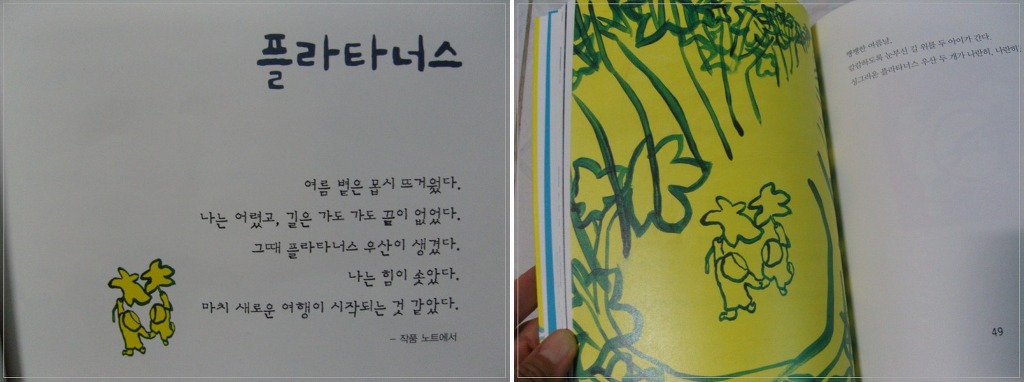 플라타너스
여름 볕은 몹시 뜨거웠다.
나는 어렸고, 길은 가도 가도 끝이 없었다.
그때 플라타너스 우산이 생겼다.
나는 힘이 솟았다.
마치 새로운 여행이 시작되는 것 같았다.
- 작품 노트에서
쨍쨍한 여름날,
캄캄하도록 눈부신 길 위를 두 아이가 간다.
싱그러운 플라타너스 우산 두 개가 나란히, 나란히.
49